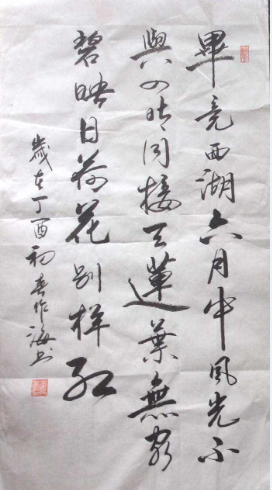 畢竟西湖六月中風光不
與四时同接天蓮葉無窮
碧映日荷花别樣红
歲在丁酉初春作海书